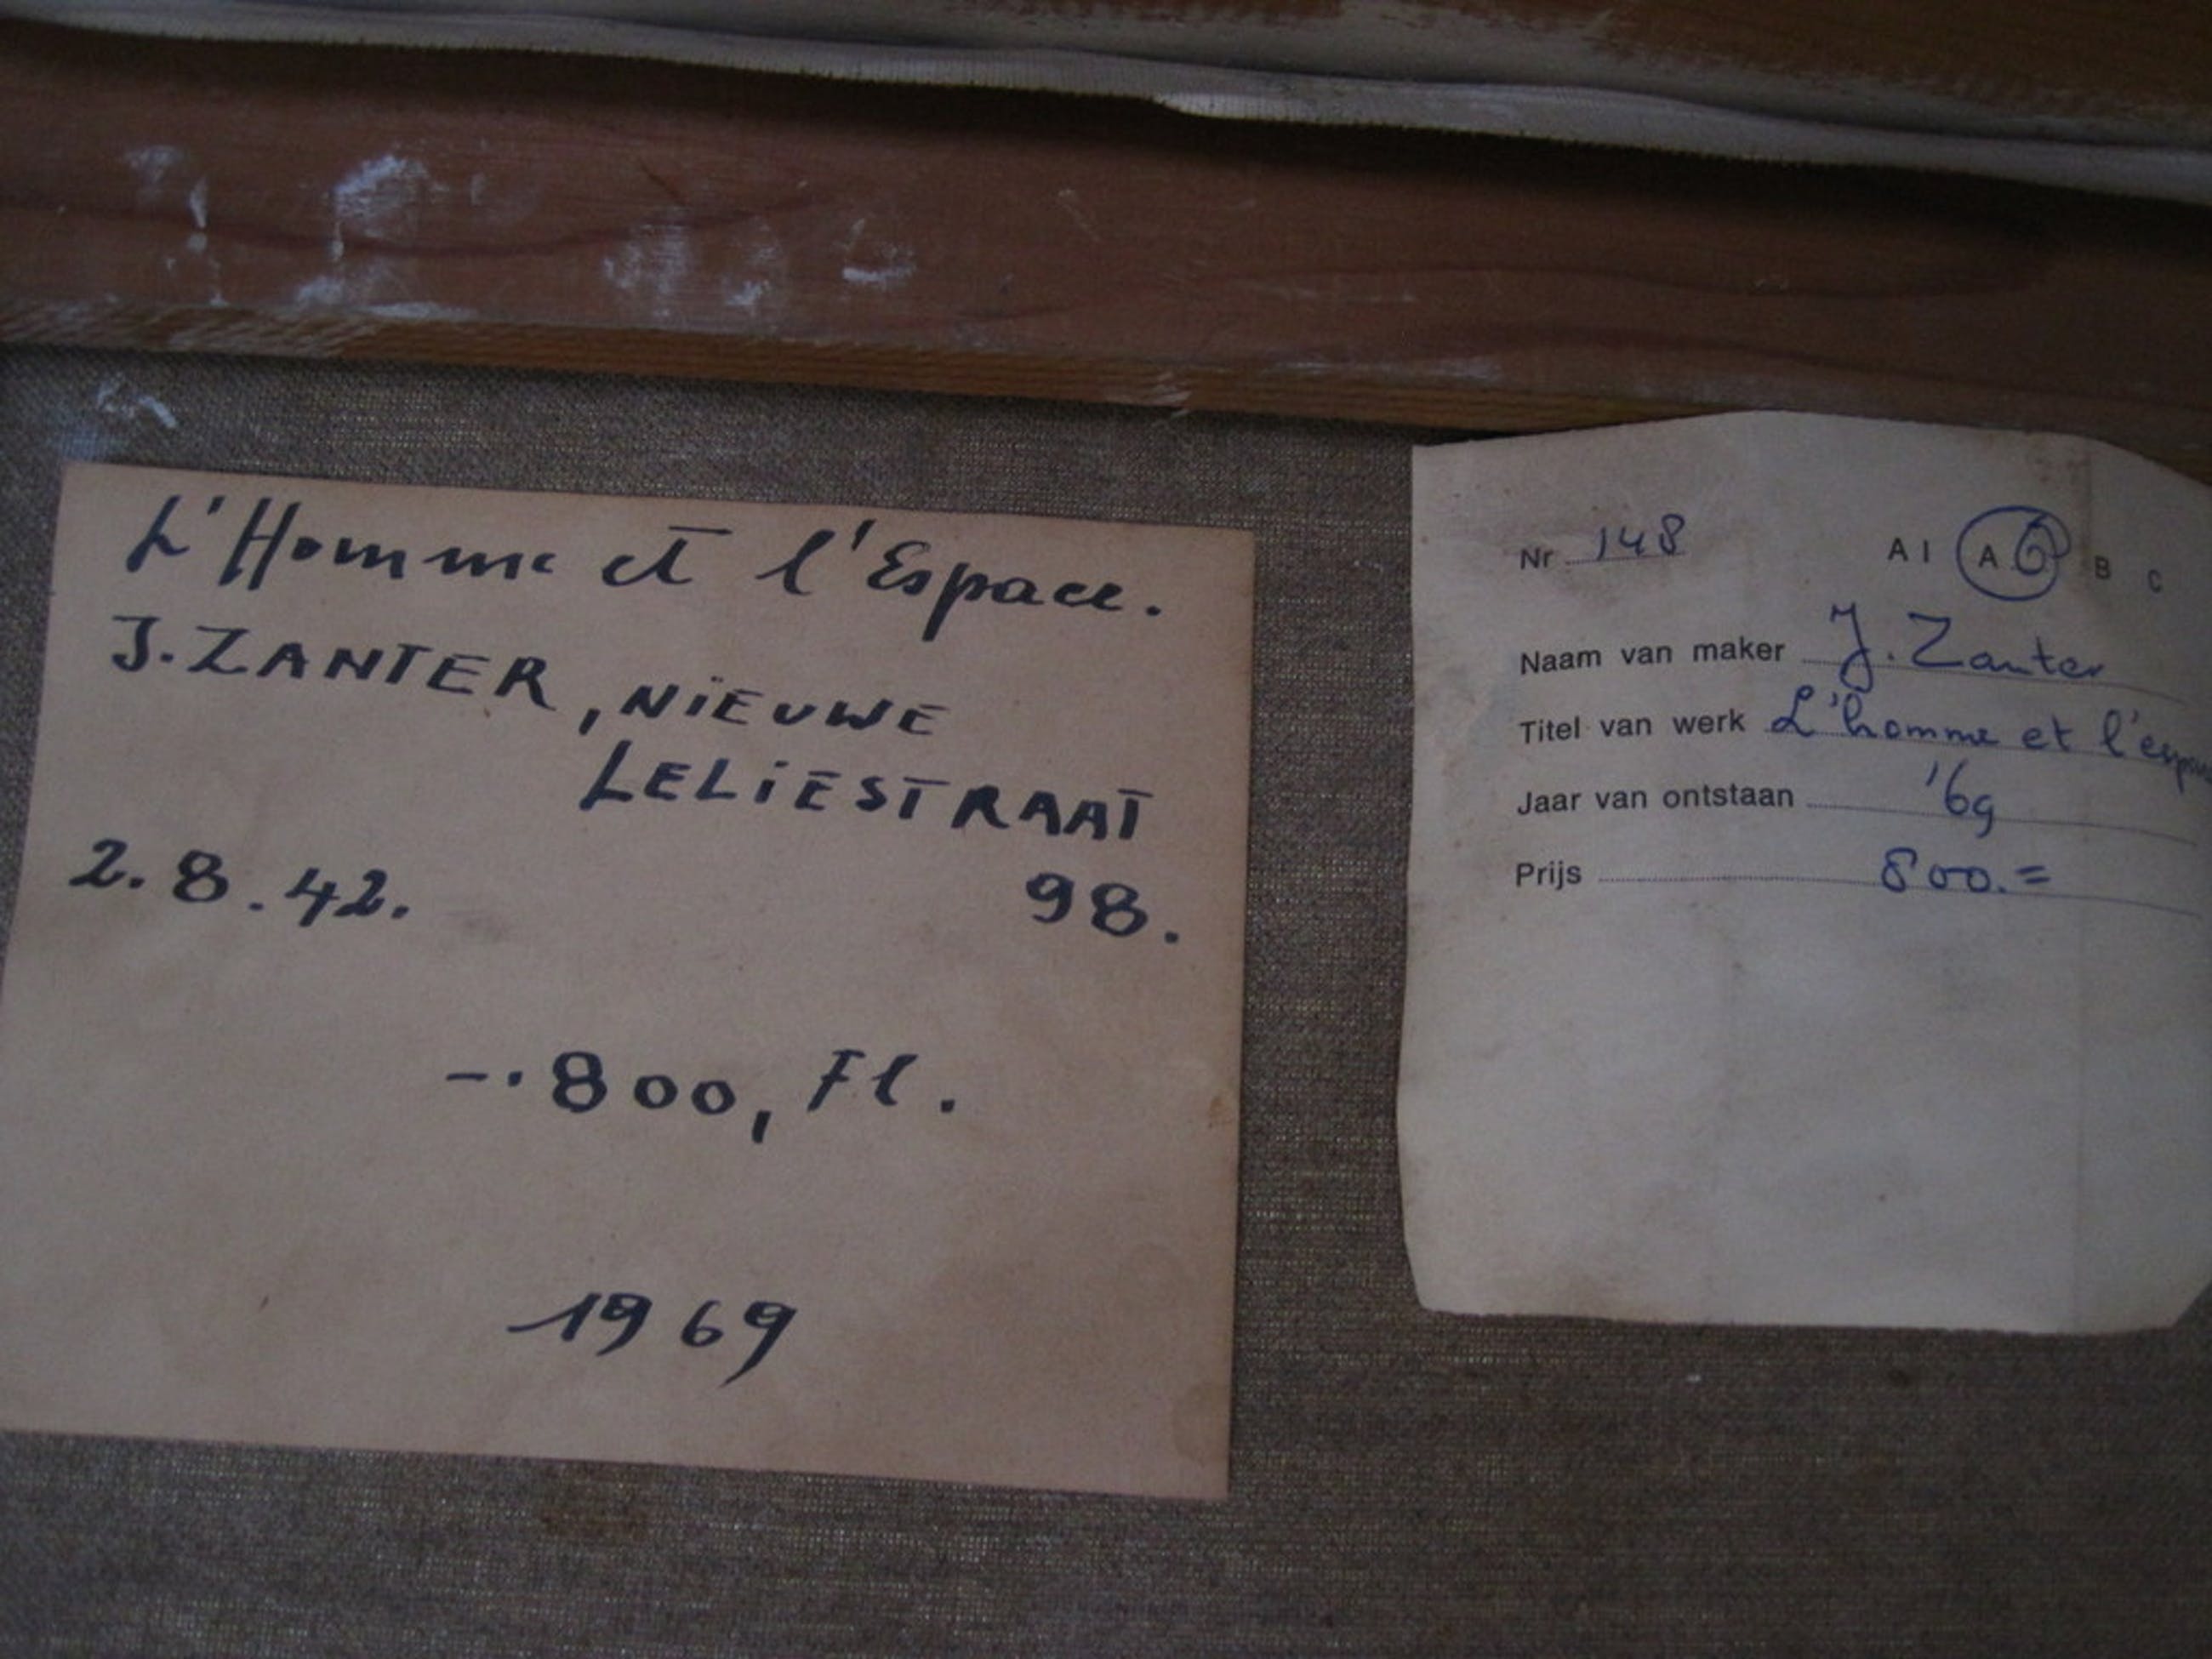 L'Homme et l'Espace.
J. ZANTER, NIEUWE
LELIESTRAAT
2.8.42. 98.
-.800, Fl.
1969
Nr 148 A I A 6 B C
Naam van maker J. Zanter
Titel van werk L'homme et l'espa
Jaar van ontstaan '69
Prijs 800.=